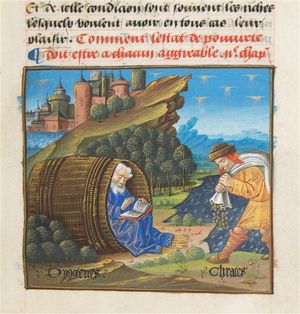 Et de telle condicion sont souvent les riches
lesquelz veulent avoir en tous cas leur
plaisir. Comment lestat de pouurete
doit estre a chacun aggreable. iiᵉ chap̃
Dyogenes
Chrates